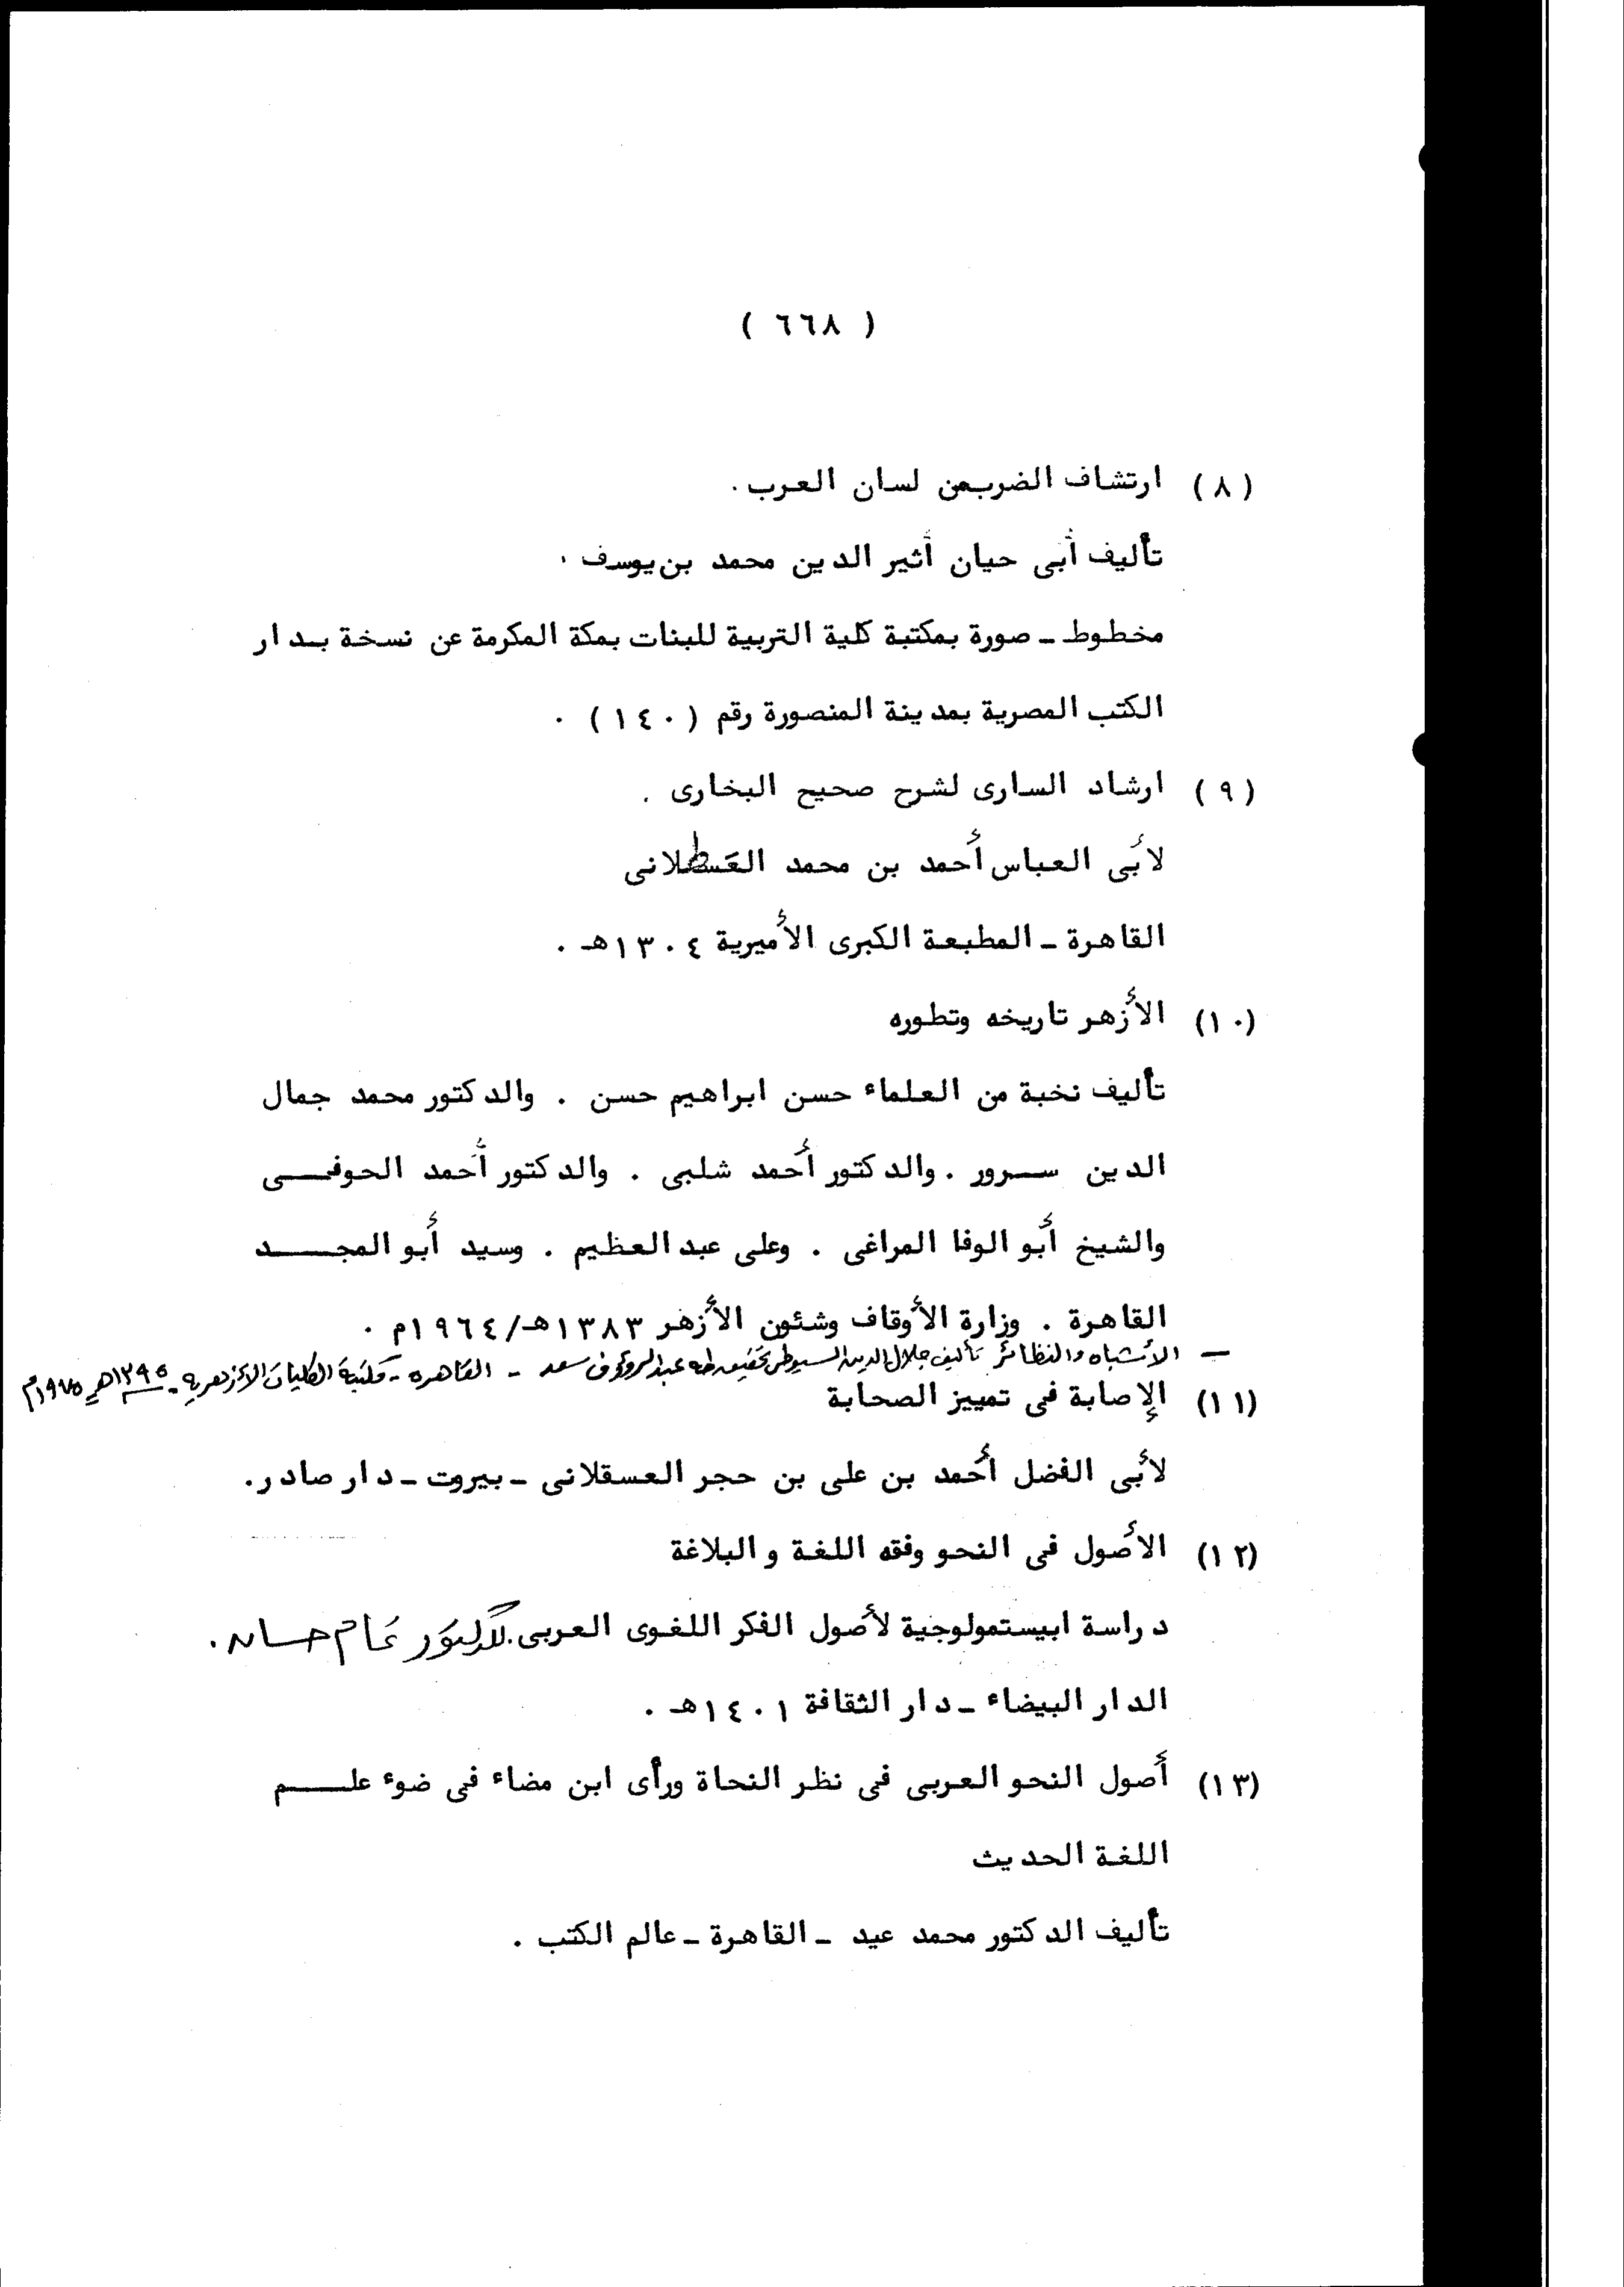 ( ٦٦٨ )
( ٨ ) ارتشاف الضرب من لسان العرب .
تأليف أبى حيان أثير الدين محمد بن يوسف .
مخطوط ـ صورة بمكتبة كلية التربية للبنات بمكة المكرمة عن نسخة بدار
الكتب المصرية بمدينة المنصورة رقم ( ١٤٠ ) .
( ٩ ) ارشاد السارى لشرح صحيح البخارى .
لأبى العباس أحمد بن محمد القسطلانى
القاهرة ـ المطبعة الكبرى الأميرية ١٣٠٤هـ .
(١٠) الأزهر تاريخه وتطوره
تأليف نخبة من العلماء حسن ابراهيم حسن . والدكتور محمد جمال
الدين سرور . والدكتور أحمد شلبى . والدكتور أحمد الحوفى
والشيخ أبو الوفا المراغى . وعلى عبد العظيم . وسيد أبو المجد
القاهرة . وزارة الأوقاف وشئون الأزهر ١٣٨٣هـ/١٩٦٤م .
ـ الأشباه والنظائر تأليف جلال الدين السيوطى تحقيق طه عبد الرؤوف سعد ـ القاهرة ـ مكتبة الكليات الأزهرية ـ ١٣٩٥هـ ١٩٧٥م
(١١) الإصابة فى تمييز الصحابة
لأبى الفضل أحمد بن على بن حجر العسقلانى ـ بيروت ـ دار صادر.
(١٢) الأصول فى النحو وفقه اللغة و البلاغة
دراسة ابيستمولوجية لأصول الفكر اللغوى العربى. للدكتور تمام حسان .
الدار البيضاء ـ دار الثقافة ١٤٠١هـ .
(١٣) أصول النحو العربى فى نظر النحاة ورأى ابن مضاء فى ضوء علم
اللغة الحديث
تأليف الدكتور محمد عيد ـ القاهرة ـ عالم الكتب .